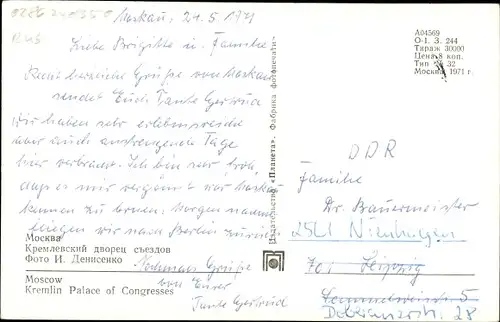 0286240350
Moskau, 21.5.1971
Liebe Brigitte u. Familie
Recht herzliche Grüße von Moskau
sendet Euch Tante Gertrud
Wir haben sehr erlebnisreiche
aber auch anstrengende Tage
hier verbracht. Ich bin sehr froh,
daß es mir vergönnt war Moskau
kennen zu lernen. Morgen nachm.
fliegen wir nach Berlin zurück
Nochmals Grüße
von Eurer
Tante Gertrud
Москва
Кремлевский дворец съездов
Фото И. Денисенко
Moscow
Kremlin Palace of Congresses
Издательство «Планета». Фабрика фотопечати
А04569
О-1. З. 244
Тираж 30000
Цена 8 коп.
Тип 32
Москва 1971 г.
DDR
Familie
Dr. Bauermeister
2561 Nienhagen
701 Leipzig
5
Doberanerstr. 28